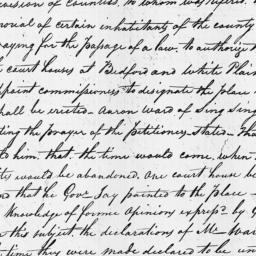 ovision of Counties, to whom was referred
rovial of certain inhabitants of the county
raying for the passage of a law, to authorise
court houses at Bedford and White Plain
ppoint commissioners to designate the place
hall be erected - Aaron Ward of Sing Sin
ting the prayer of the petitioners Stated - Tha
to him, that, the time would come, when
ty would be abandoned. One court house be
nd that he Govr. Jay pointed to the place -
Knowledge of former Opinions expresd. by G
this subject. the declarations of Mr. War
time they were made declared to be un